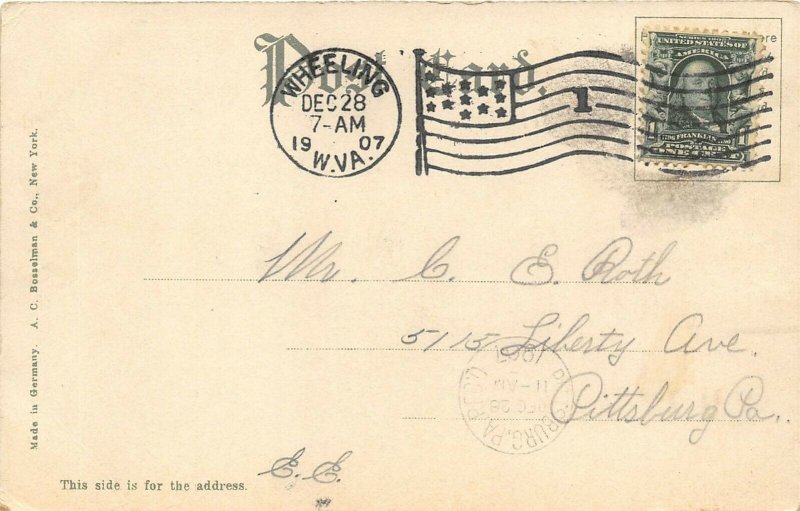 Post Card.
WHEELING
DEC 28
7-AM
1907
W.VA.
1
SERIES 1902
UNITED STATES OF
AMERICA
FRANKLIN
POSTAGE
Mr. C. E. Roth
5115 Liberty Ave.
Pittsburg Pa.
1907
11-AM
DEC 28
E. E.
This side is for the address.
Made in Germany. A. C. Bosselman & Co., New York.